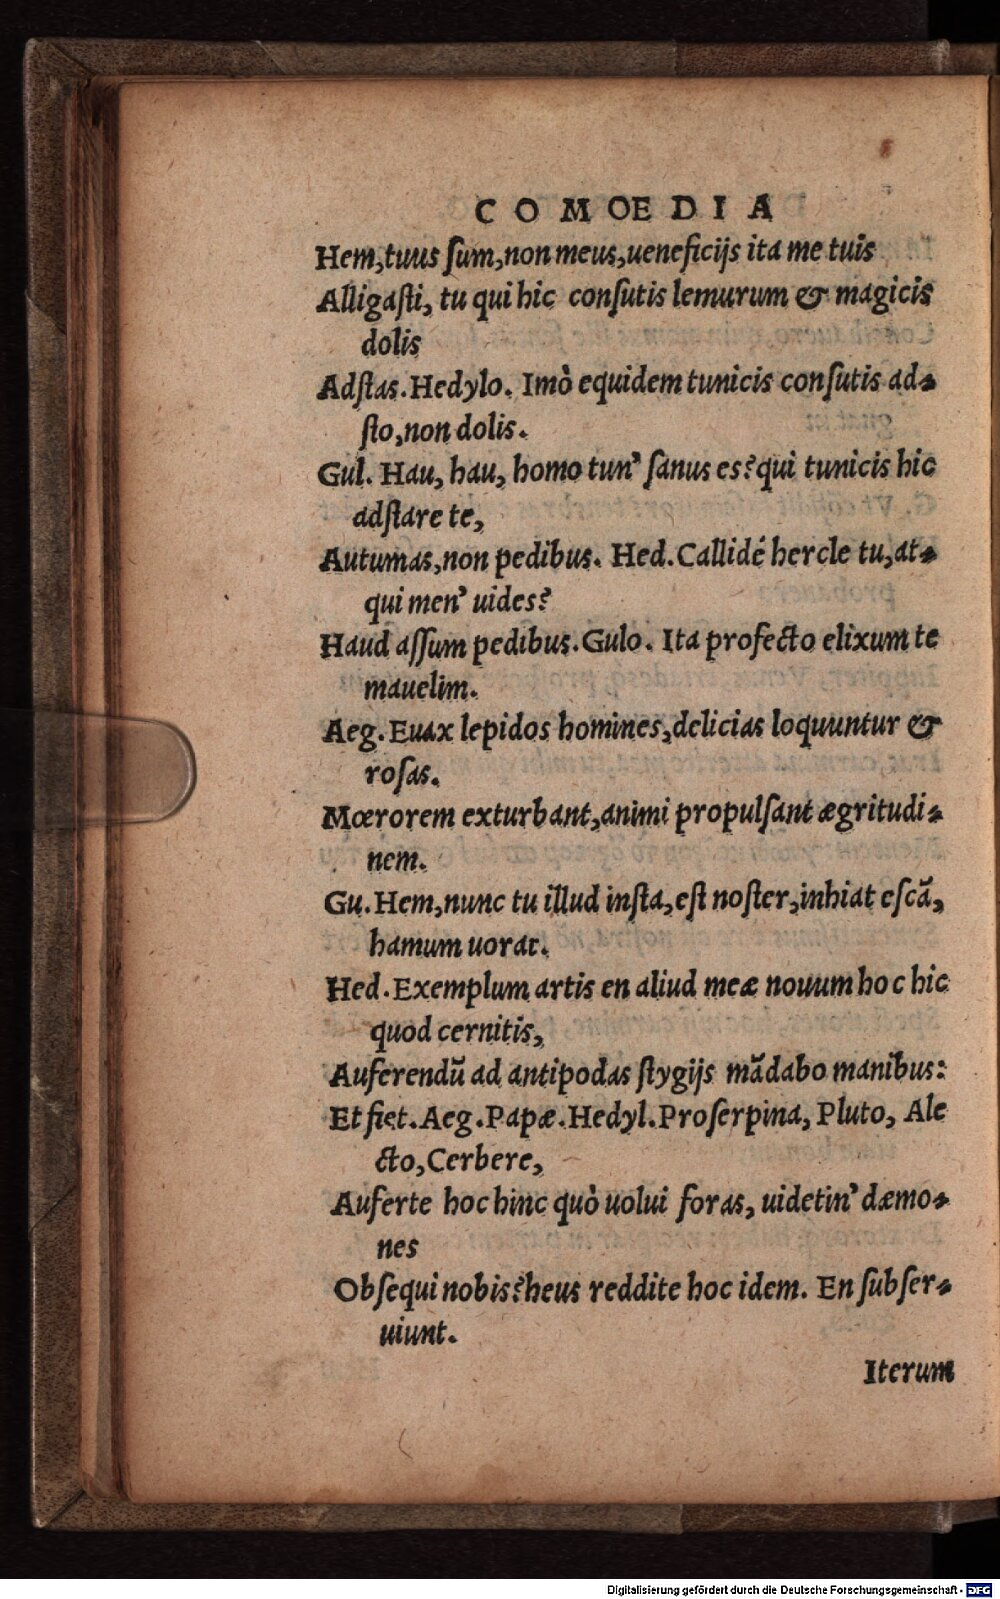 COMOEDIA
Hem, tuus sum, non meus, ueneficijs ita me tuis
Alligasti, tu qui hic consutis lemurum & magicis
dolis
Adstas. Hedylo. Imò equidem tunicis consutis ad-
sto, non dolis.
Gul. Hau, hau, homo tun' sanus es? qui tunicis hic
adstare te,
Autumas, non pedibus. Hed. Callidé hercle tu, at-
qui men' uides?
Haud assum pedibus. Gulo. Ita profecto elixum te
mauelim.
Aeg. Euax lepidos homines, delicias loquuntur &
rosas.
Mœrorem exturbant, animi propulsant ægritudi-
nem.
Gu. Hem, nunc tu illud insta, est noster, inhiat escā,
hamum uorat.
Hed. Exemplum artis en aliud meæ nouum hoc hic
quod cernitis,
Auferendū ad antipodas stygijs mādabo manibus:
Et fiet. Aeg. Papæ. Hedyl. Proserpina, Pluto, Ale
cto, Cerbere,
Auferte hoc hinc quò uolui foras, uidetin' dæmo-
nes
Obsequi nobis? heus reddite hoc idem. En subser-
uiunt.
Iterum
Digitalisierung gefördert durch die Deutsche Forschungsgemeinschaft - DFG